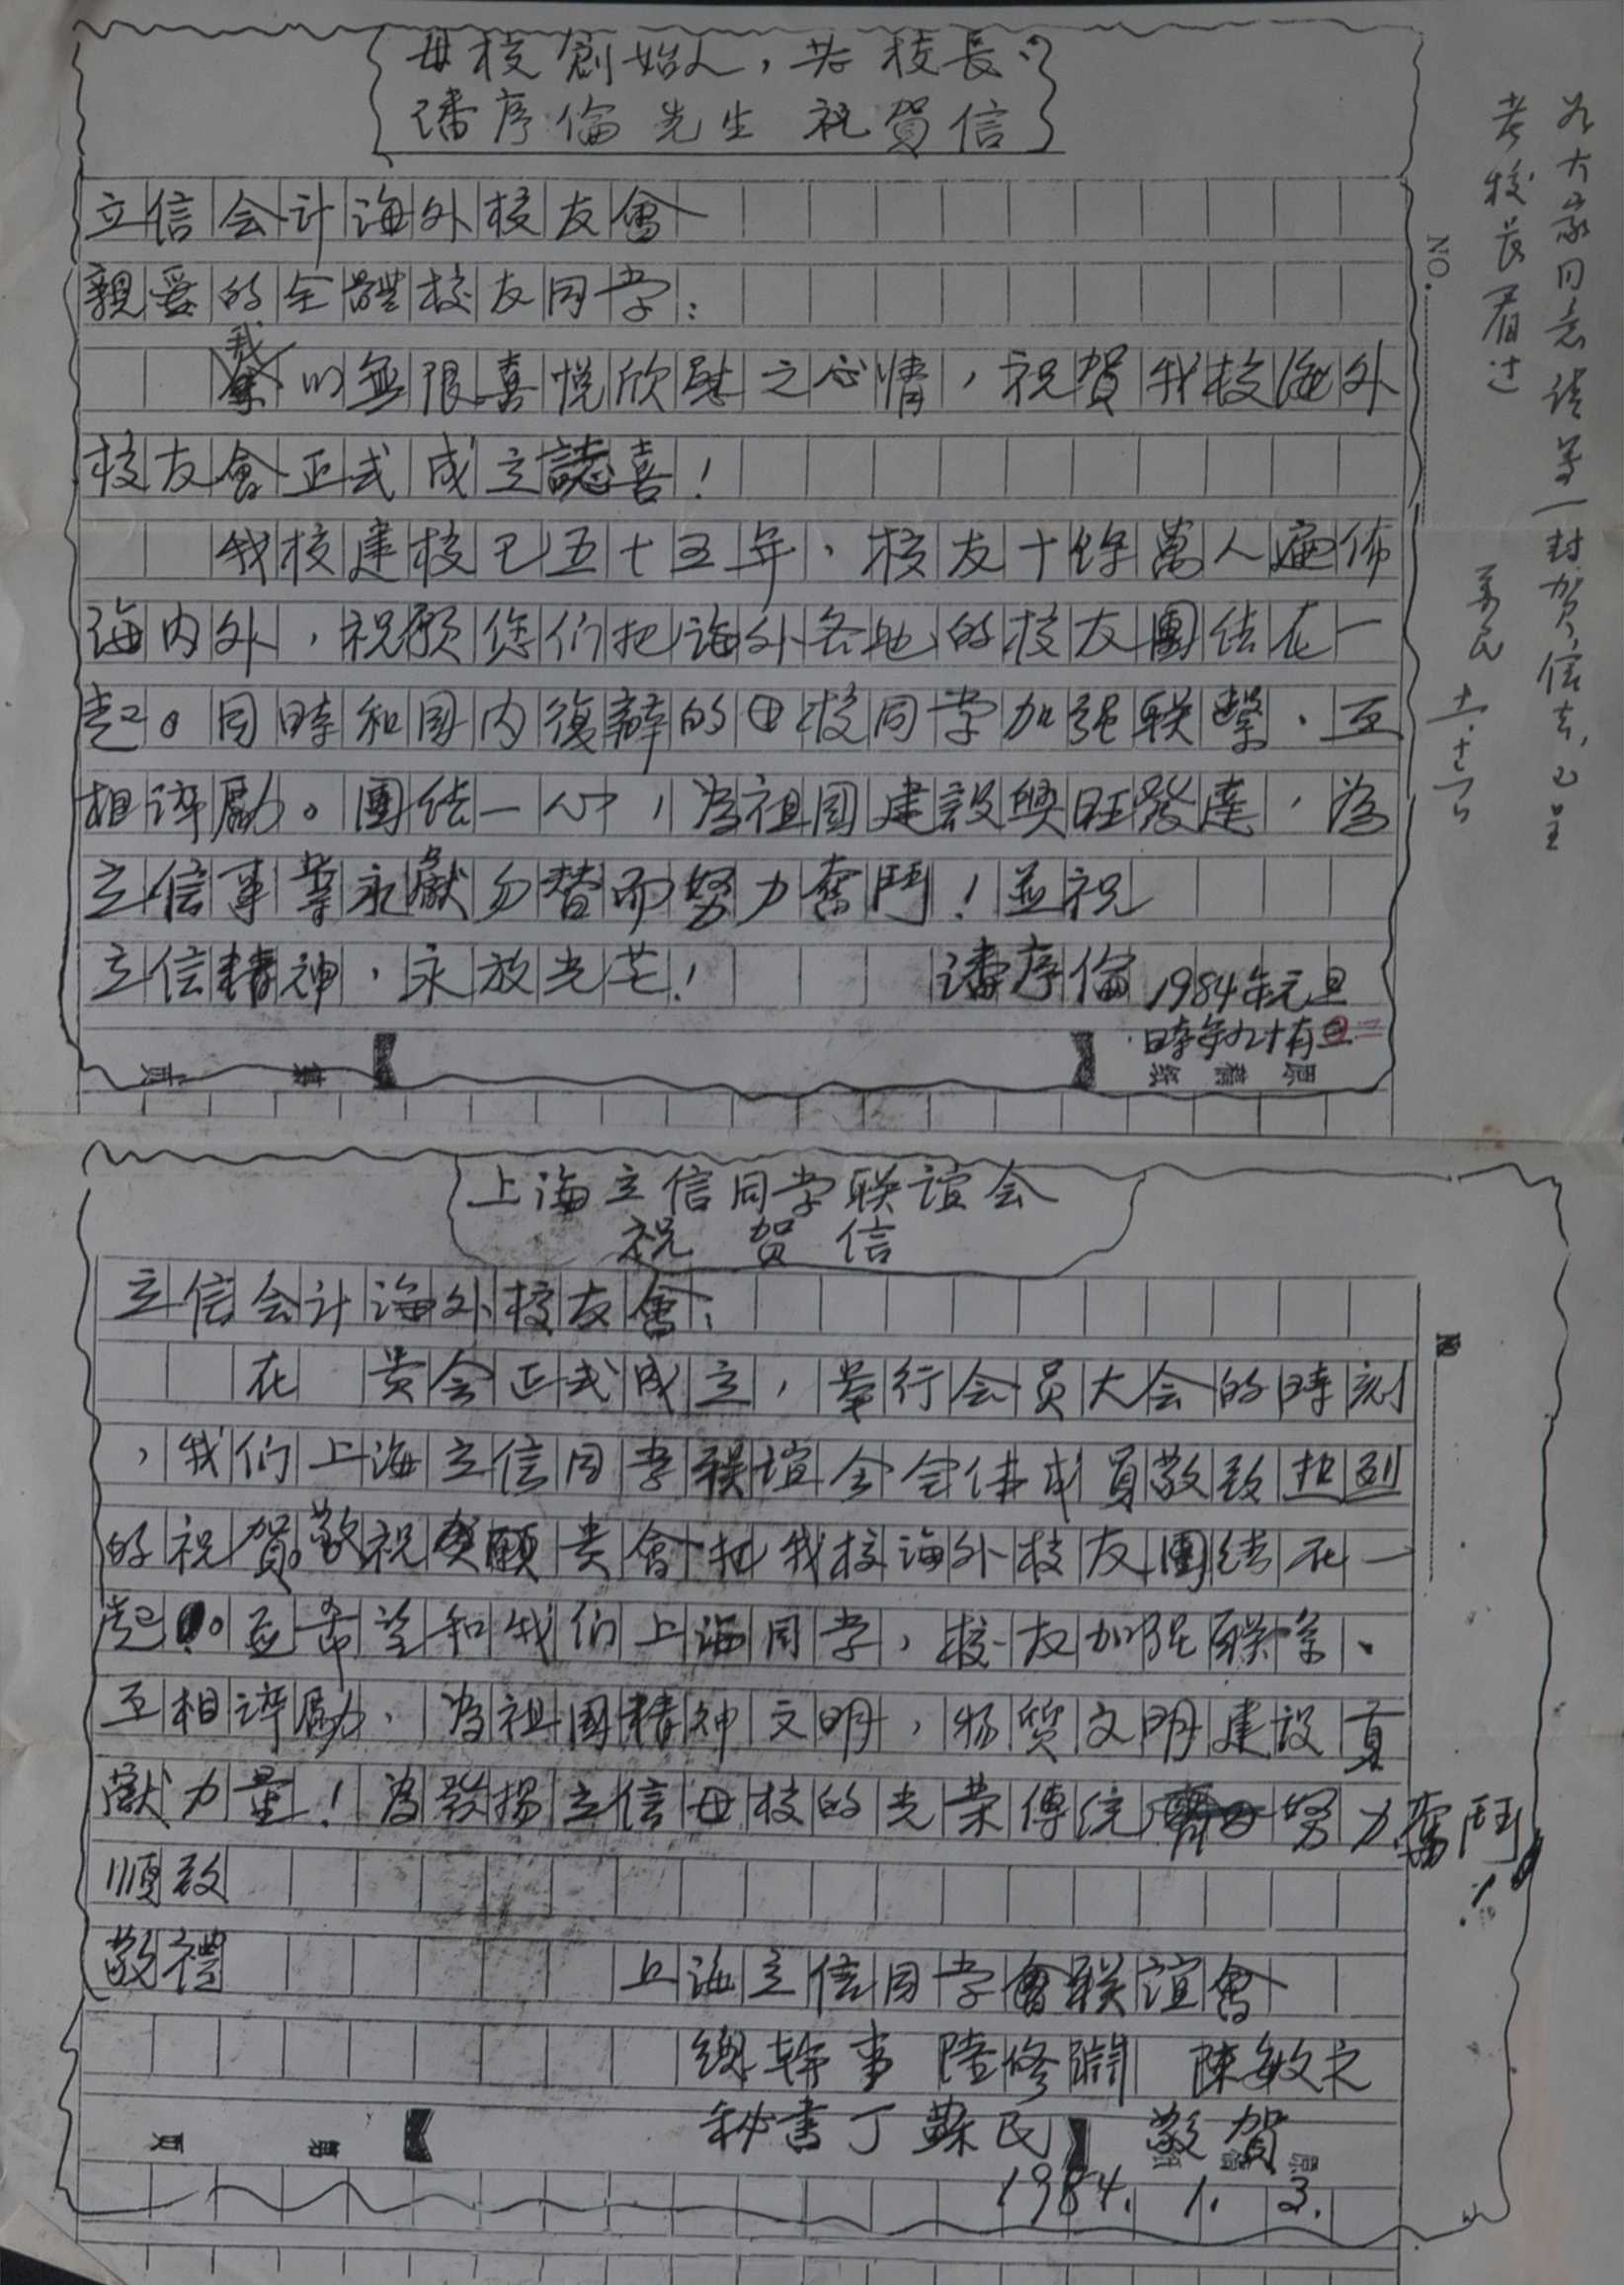 母校創始人，老校長
潘序倫先生祝賀信
立信会计海外校友會
親爱的全體校友同学：
我以無限喜悦欣慰之心情，祝賀我校海外
校友會正式成立誌喜！
我校建校已五十五年，校友十餘萬人遍佈
海内外，祝願您们把海外各地的校友團结在一
起。同時和国内復辦的母校同学加强联繫，互
相淬励。團结一心，為祖國建設興旺發達，為
立信事業永献勿替而努力奮鬥！並祝
立信精神，永放光芒！ 潘序倫 1984年元旦
時年九十有
页 第 原稿纸
NO.
如大家同意请第一封贺信去，已呈
老校长看过
上海立信同学联谊会
祝贺信
立信会计海外校友會：
在 贵会正式成立，举行会员大会的時刻
，我们上海立信同学联谊会全体成員敬致热烈
的祝賀。敬祝願贵會把我校海外校友團结在一
起。並希望和我们上海同学，校友加强联系、
互相淬励，為祖國精神文明，物质文明建设貢
献力量！為發揚立信母校的光荣傳統努力奮鬥！
順致
敬禮 上海立信同学联谊會
總幹事 陸修淵 陳敏之
秘書丁蘇民 敬賀
页 第
1984. 1. 3.